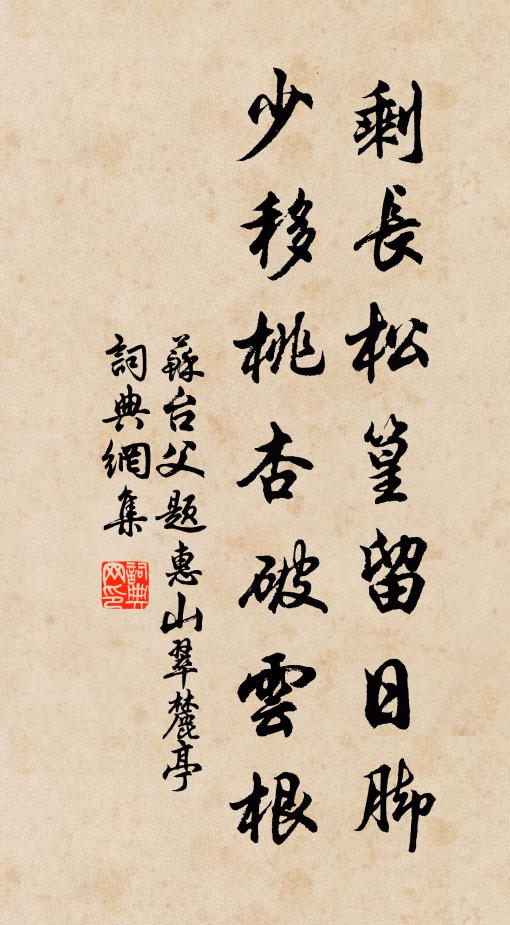 剩長松篁留日脚
少移桃杏破雲根
蘇台父题惠山翠麓亭
詞典網集
詞典
网印